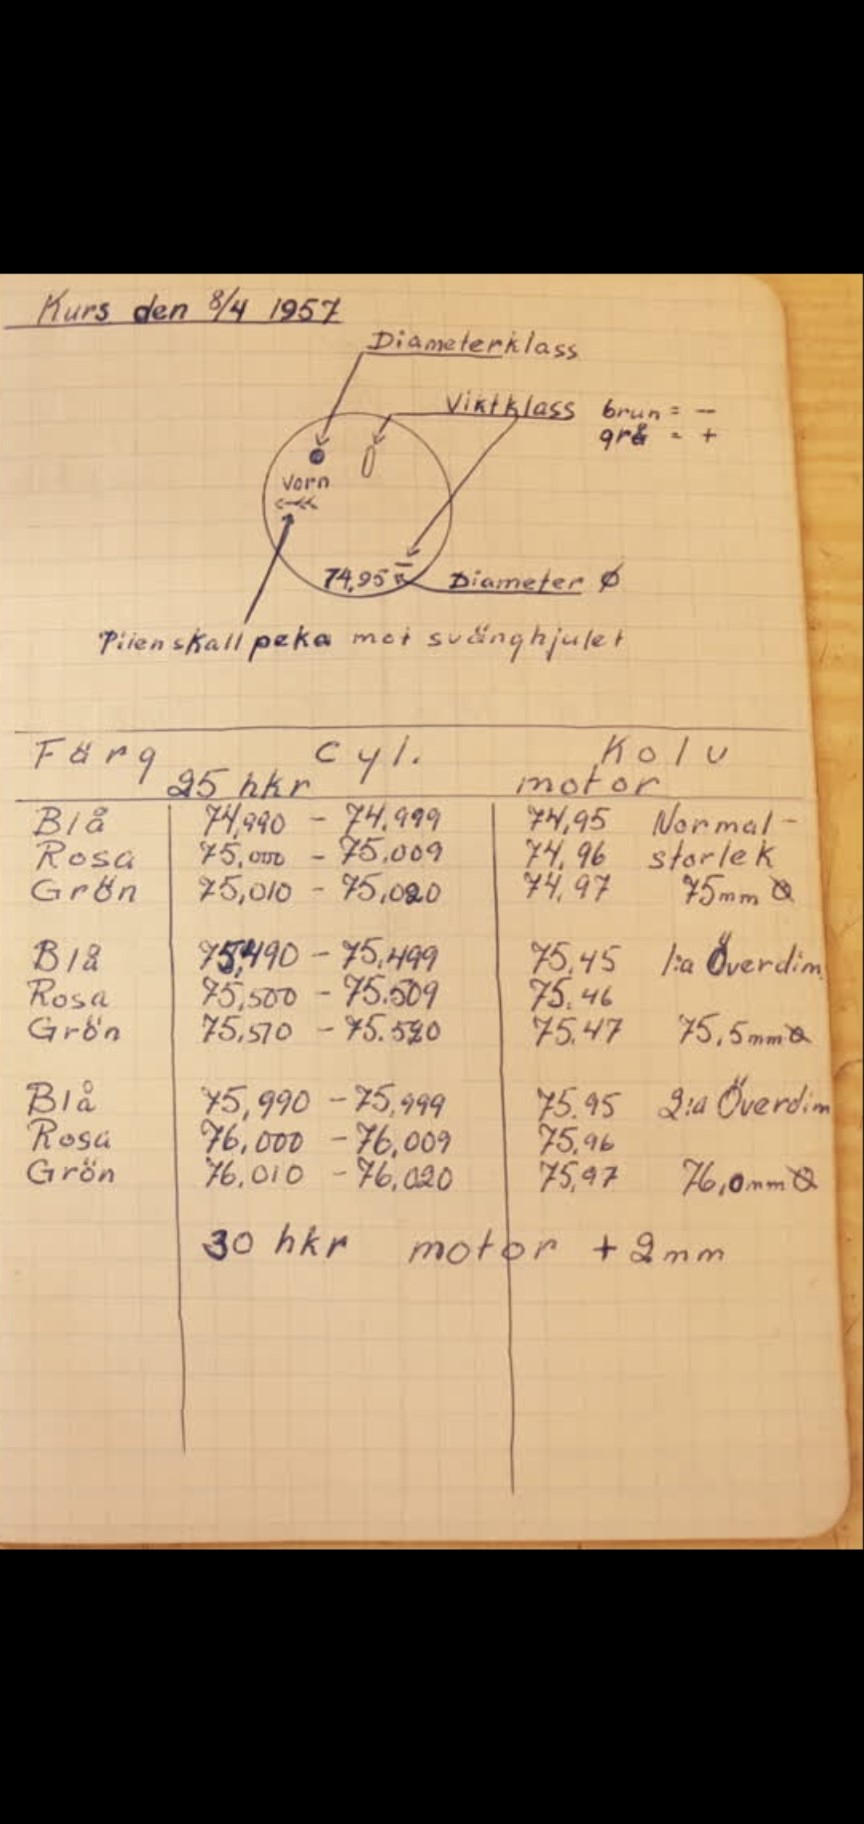 Kurs den 8/4 1957
Diameterklass
Viktklass brun = -
grå = +
Vorn
74,95 - Diameter Ø
Pilen skall peka mot svänghjulet
Färg Cyl. Kolv
25 hkr motor
Blå 74,990 - 74.999 74,95 Normal-
Rosa 75,000 - 75.009 74,96 storlek
Grön 75,010 - 75,020 74,97 75mm Ø
Blå 75,490 - 75.499 75,45 1:a Överdim.
Rosa 75,500 - 75.509 75.46
Grön 75,510 - 75.520 75.47 75,5mm Ø
Blå 75,990 - 75,999 75.95 2:a Överdim
Rosa 76,000 - 76,009 75,96
Grön 76,010 - 76,020 75,97 76,0mm Ø
30 hkr motor + 2mm